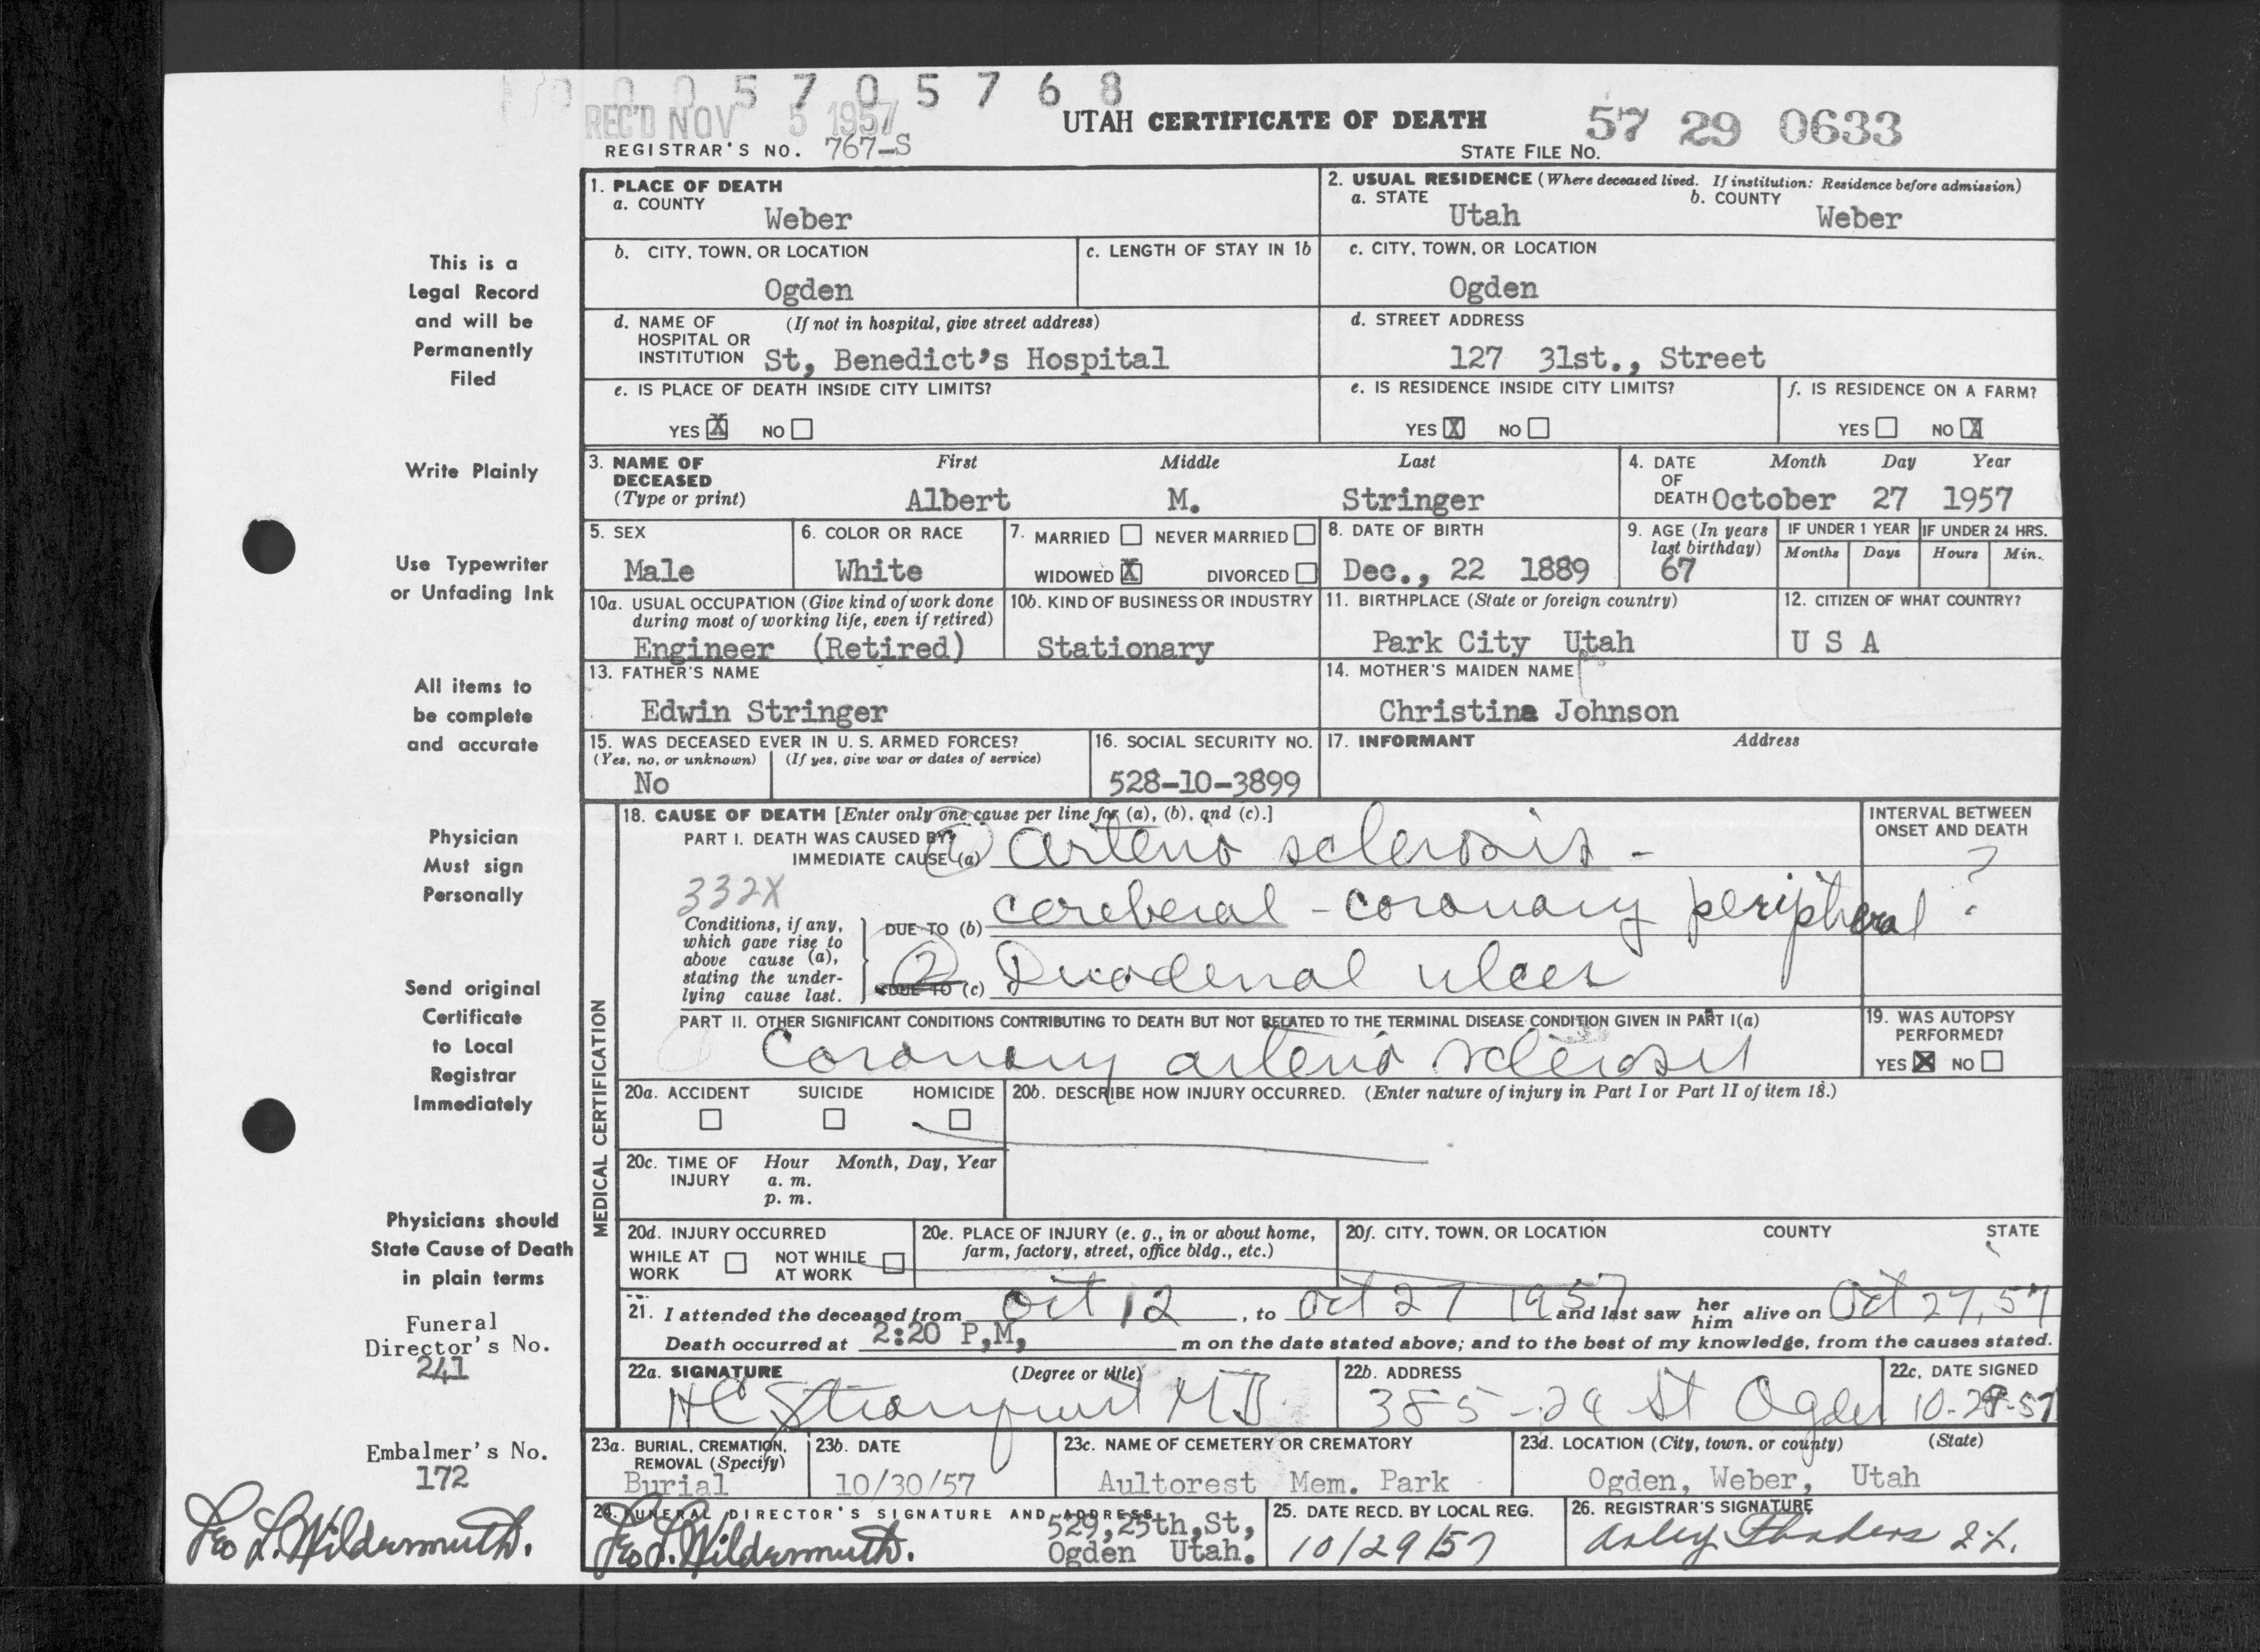 0 0 5 7 0 5 7 6 8
REC'D NOV 5 1957
UTAH CERTIFICATE OF DEATH
57 29 0633
REGISTRAR'S NO. 767-S
STATE FILE NO.
This is a
Legal Record
and will be
Permanently
Filed
Write Plainly
Use Typewriter
or Unfading Ink
All items to
be complete
and accurate
Physician
Must sign
Personally
Send original
Certificate
to Local
Registrar
Immediately
Physicians should
State Cause of Death
in plain terms
Funeral
Director's No.
241
Embalmer's No.
172
Geo L. Wildermuth.
1. PLACE OF DEATH
a. COUNTY
Weber
2. USUAL RESIDENCE (Where deceased lived. If institution: Residence before admission)
a. STATE
Utah
b. COUNTY
Weber
b. CITY, TOWN, OR LOCATION
Ogden
c. LENGTH OF STAY IN 1b
c. CITY, TOWN, OR LOCATION
Ogden
d. NAME OF (If not in hospital, give street address)
HOSPITAL OR
INSTITUTION St, Benedict's Hospital
d. STREET ADDRESS
127 31st., Street
e. IS PLACE OF DEATH INSIDE CITY LIMITS?
YES X NO
e. IS RESIDENCE INSIDE CITY LIMITS?
YES X NO
f. IS RESIDENCE ON A FARM?
YES NO X
3. NAME OF
DECEASED
(Type or print)
First Middle Last
Albert M. Stringer
4. DATE
OF
DEATH
Month Day Year
October 27 1957
5. SEX
Male
6. COLOR OR RACE
White
7. MARRIED NEVER MARRIED
WIDOWED X DIVORCED
8. DATE OF BIRTH
Dec., 22 1889
9. AGE (In years
last birthday)
67
IF UNDER 1 YEAR
Months Days
IF UNDER 24 HRS.
Hours Min.
10a. USUAL OCCUPATION (Give kind of work done
during most of working life, even if retired)
Engineer (Retired)
10b. KIND OF BUSINESS OR INDUSTRY
Stationary
11. BIRTHPLACE (State or foreign country)
Park City Utah
12. CITIZEN OF WHAT COUNTRY?
U S A
13. FATHER'S NAME
Edwin Stringer
14. MOTHER'S MAIDEN NAME
Christina Johnson
15. WAS DECEASED EVER IN U. S. ARMED FORCES?
(Yes, no, or unknown) (If yes, give war or dates of service)
No
16. SOCIAL SECURITY NO.
528-10-3899
17. INFORMANT Address
MEDICAL CERTIFICATION
18. CAUSE OF DEATH [Enter only one cause per line for (a), (b), and (c).]
PART I. DEATH WAS CAUSED BY:
IMMEDIATE CAUSE (a) 1 arterio sclerosis -
INTERVAL BETWEEN
ONSET AND DEATH
?
332X
Conditions, if any,
which gave rise to
above cause (a),
stating the under-
lying cause last.
DUE TO (b) cerebral - coronary peripheral
DUE TO (c) 2 Duodenal ulcer
PART II. OTHER SIGNIFICANT CONDITIONS CONTRIBUTING TO DEATH BUT NOT RELATED TO THE TERMINAL DISEASE CONDITION GIVEN IN PART I(a)
Coronary arterio sclerosis
19. WAS AUTOPSY
PERFORMED?
YES X NO
20a. ACCIDENT SUICIDE HOMICIDE
20b. DESCRIBE HOW INJURY OCCURRED. (Enter nature of injury in Part I or Part II of item 18.)
20c. TIME OF
INJURY
Hour Month, Day, Year
a. m.
p. m.
20d. INJURY OCCURRED
WHILE AT
WORK
NOT WHILE
AT WORK
20e. PLACE OF INJURY (e. g., in or about home,
farm, factory, street, office bldg., etc.)
20f. CITY, TOWN, OR LOCATION COUNTY STATE
21. I attended the deceased from Oct 12, to Oct 27 1957 and last saw her him alive on Oct 27, 57
Death occurred at 2:20 P,M, m on the date stated above; and to the best of my knowledge, from the causes stated.
22a. SIGNATURE (Degree or title)
HC Stranquist MD
22b. ADDRESS
385-24 St Ogden
22c. DATE SIGNED
10-29-57
23a. BURIAL, CREMATION,
REMOVAL (Specify)
Burial
23b. DATE
10/30/57
23c. NAME OF CEMETERY OR CREMATORY
Aultorest Mem. Park
23d. LOCATION (City, town, or county) (State)
Ogden, Weber, Utah
24. FUNERAL DIRECTOR'S SIGNATURE AND ADDRESS
Geo L. Wildermuth.
529, 25th, St,
Ogden Utah.
25. DATE RECD. BY LOCAL REG.
10/29/57
26. REGISTRAR'S SIGNATURE